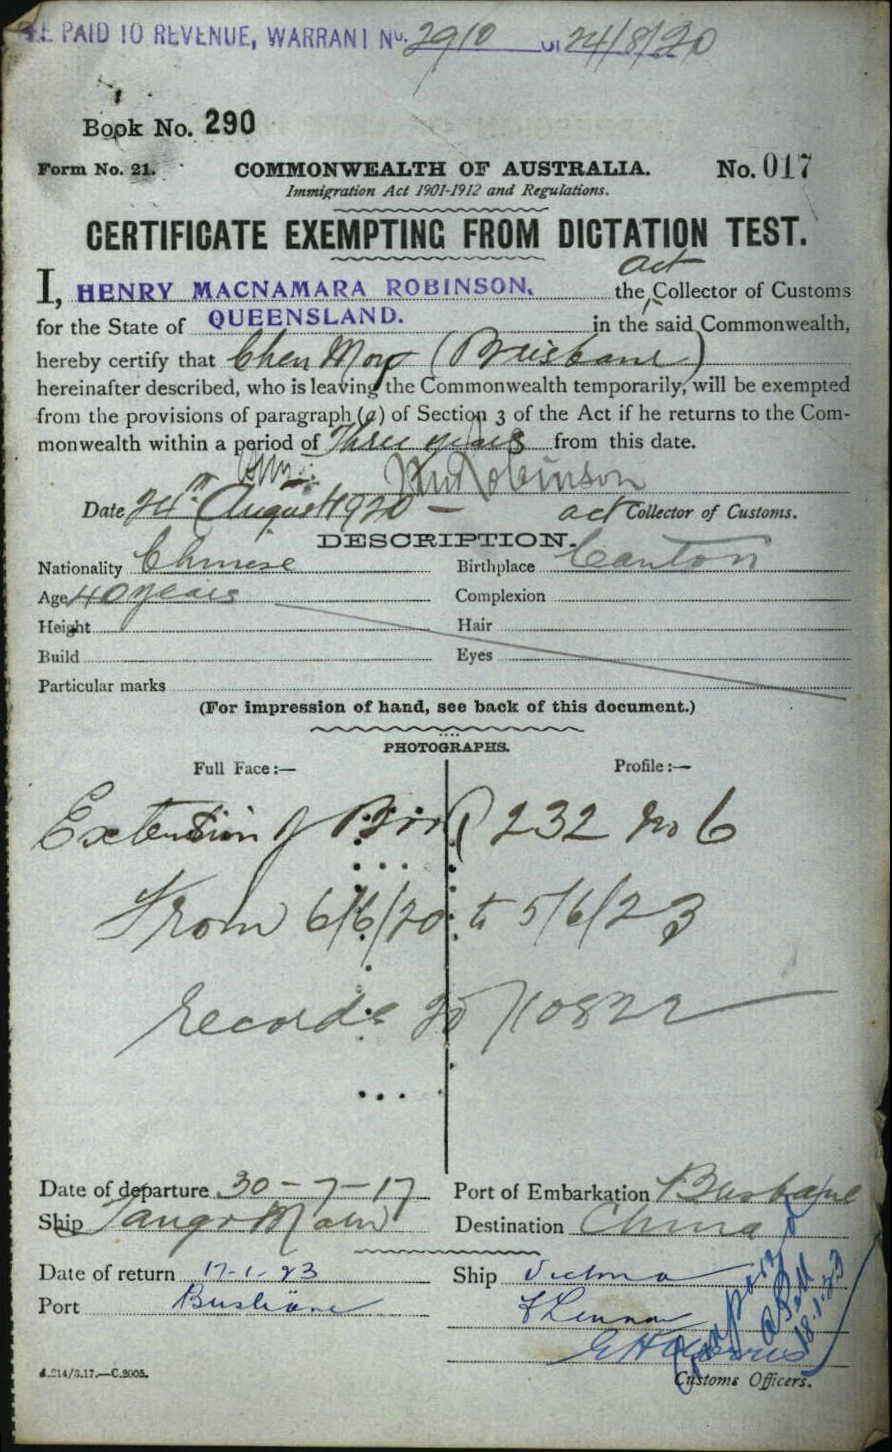 PAID TO REVENUE, WARRANT No. 2910 OF 24/8/20
Book No. 290
Form No. 21. COMMONWEALTH OF AUSTRALIA. No. 017
Immigration Act 1901-1912 and Regulations.
CERTIFICATE EXEMPTING FROM DICTATION TEST.
act
I, HENRY MACNAMARA ROBINSON, the Collector of Customs
for the State of QUEENSLAND. in the said Commonwealth,
hereby certify that Chen Moy (Brisbane)
hereinafter described, who is leaving the Commonwealth temporarily, will be exempted
from the provisions of paragraph (a) of Section 3 of the Act if he returns to the Com-
monwealth within a period of Three years from this date.
HM Robinson
Date 24th August 1920 - act Collector of Customs.
DESCRIPTION.
Nationality Chinese Birthplace Canton
Age 40 years Complexion
Height Hair
Build Eyes
Particular marks
(For impression of hand, see back of this document.)
PHOTOGRAPHS.
Full Face:— Profile:—
Extension of Book 232 No 6
From 6/6/20 to 5/6/23
Records 20/10822
Date of departure 30-7-17 Port of Embarkation Brisbane
Ship Tango Maru Destination China
Date of return 17-1-23 Ship Victoria
Port Brisbane
18.1.23
Customs Officers.
A.214/3.17.—C.2005.